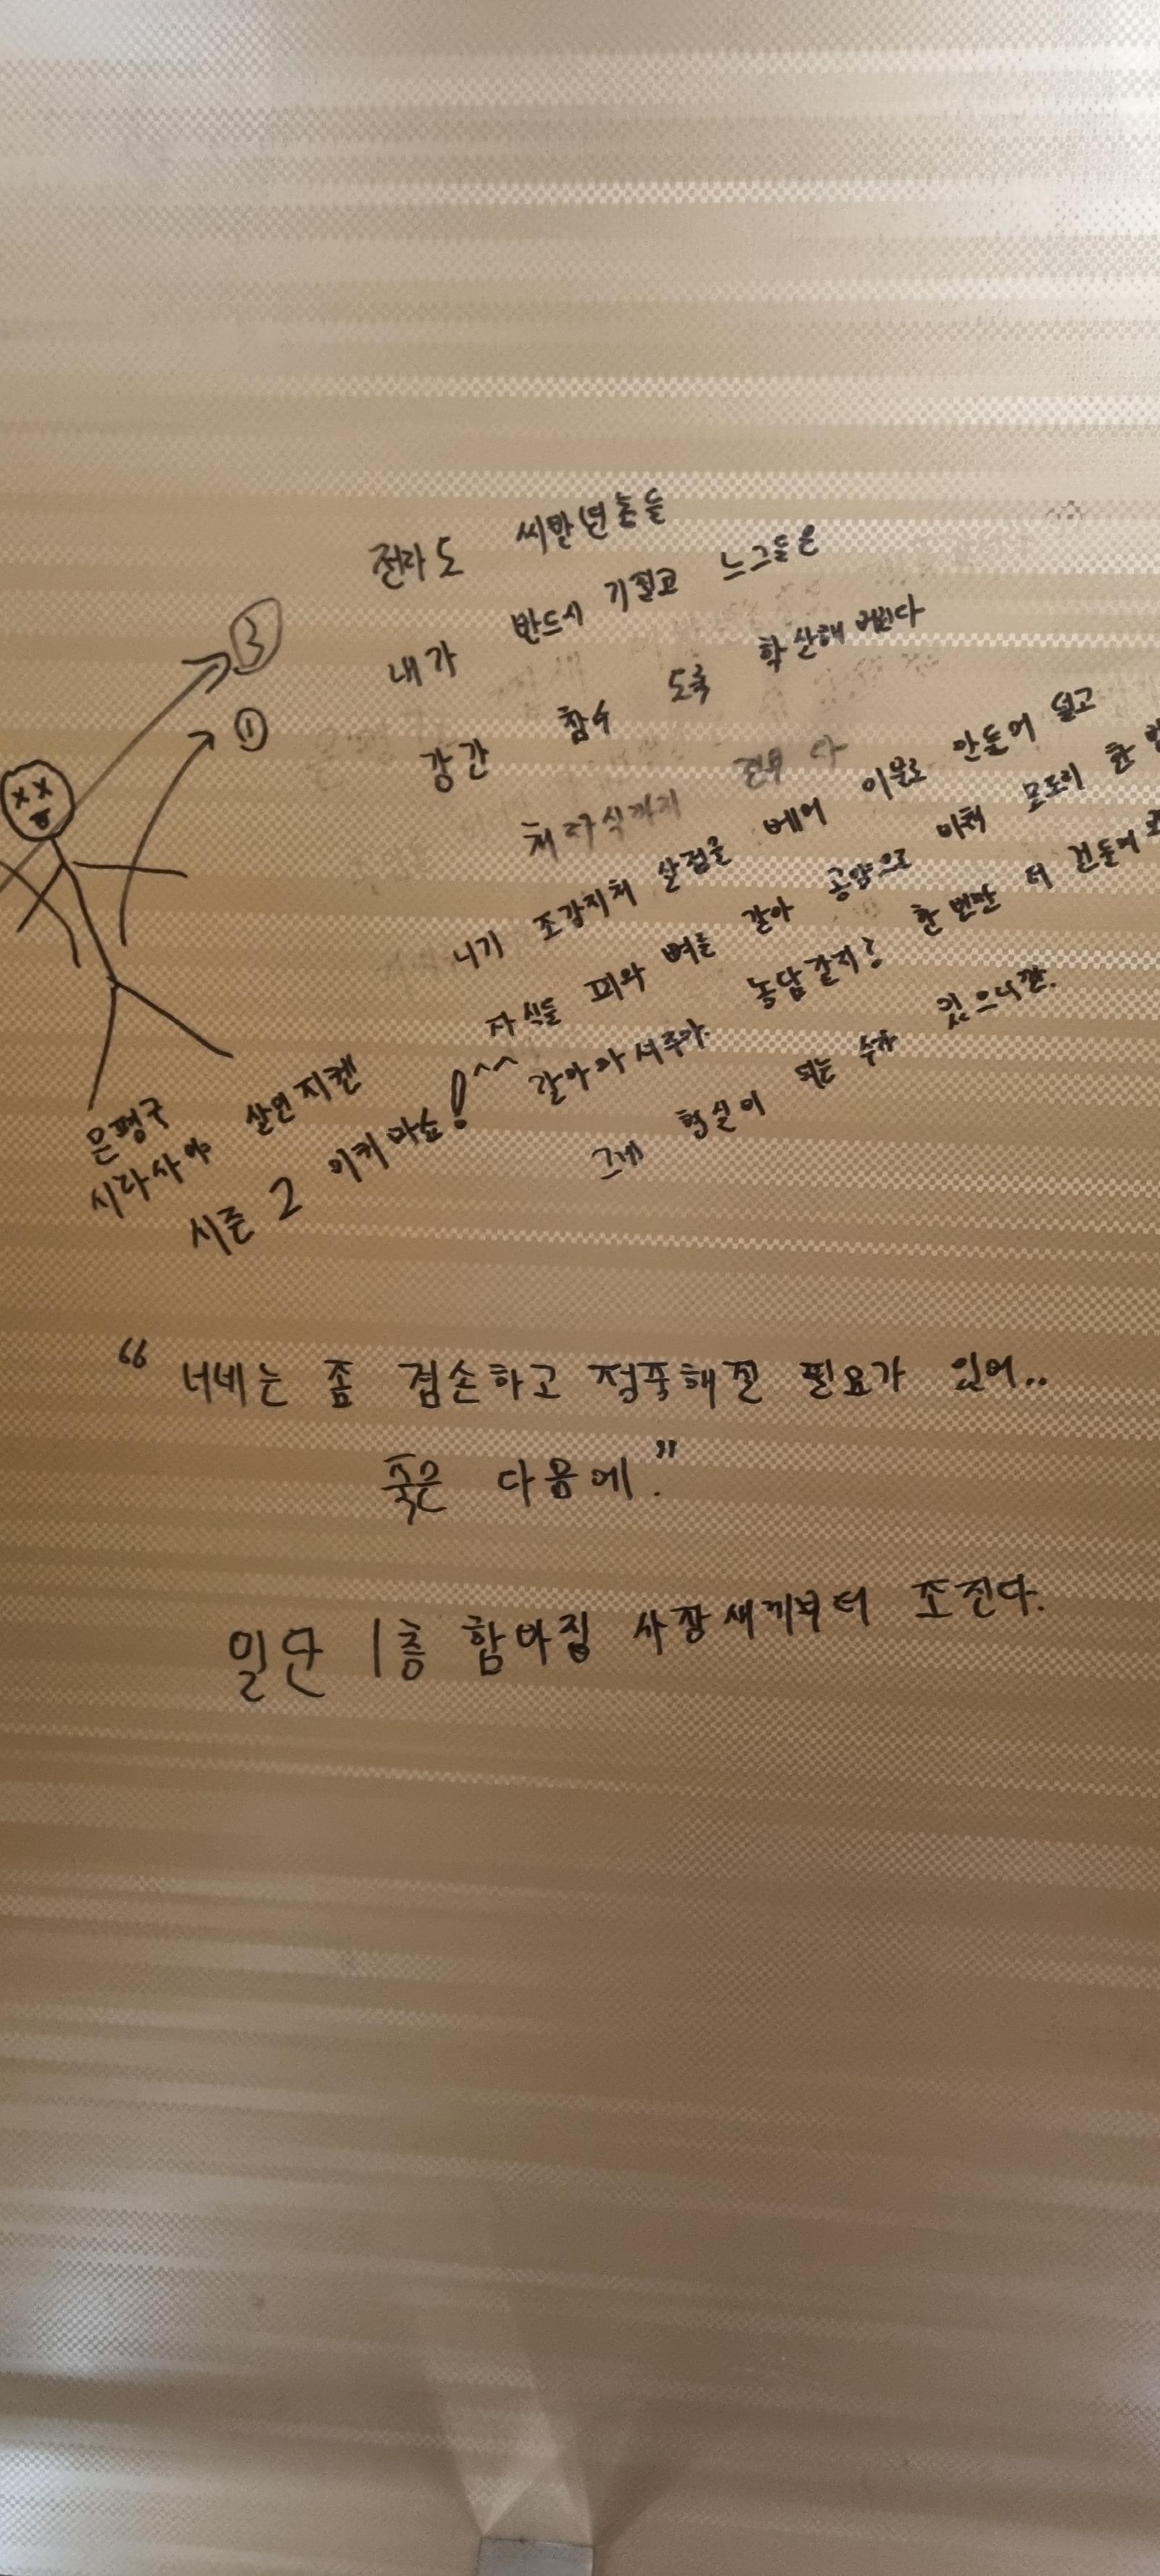 전라도 씨발년놈들
내가 반드시 기필고 느그들은
강간 함수 도륙 학산해버린다
처자식까지 전부 다
니기 조강지처 살점을 베어 이불로 만들어 덮고
자식들 피와 뼈를 갈아 공양으로 바쳐 모조리 한
갈아마셔주마. 농담같지? 한번만 더 건들여
그게 현실이 되는 수가 있으니깐.
③
①
은평구
시라사야 살인지켄
시즌 2 이키마쇼! ^^
“너네는 좀 겸손하고 정중해질 필요가 있어..
죽은 다음에.”
일단 1층 함바집 사장새끼부터 조진다.